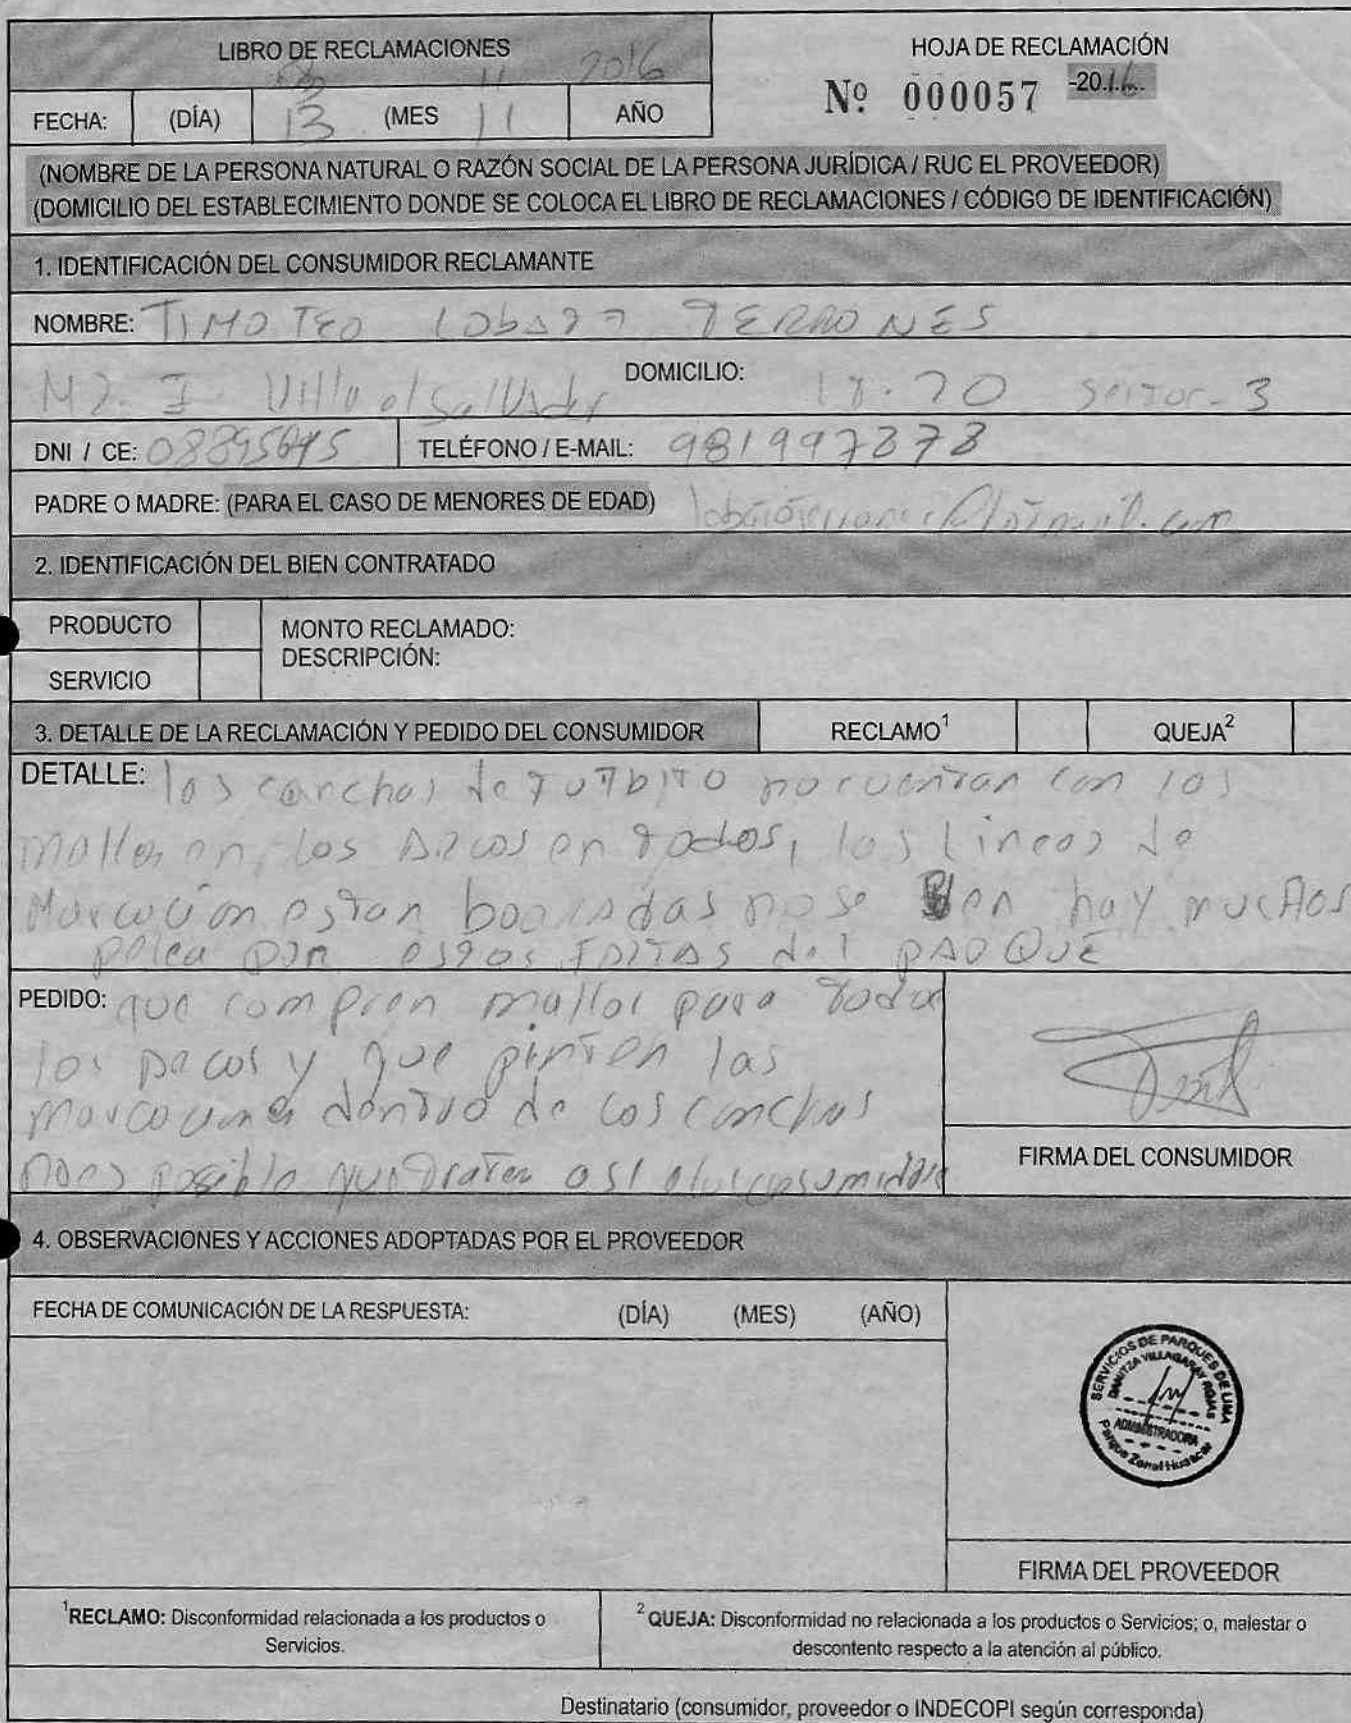 LIBRO DE RECLAMACIONES
13 11 2016
HOJA DE RECLAMACIÓN
Nº 000057 -2016
FECHA: (DÍA) 13 (MES 11 AÑO
(NOMBRE DE LA PERSONA NATURAL O RAZÓN SOCIAL DE LA PERSONA JURÍDICA / RUC EL PROVEEDOR)
(DOMICILIO DEL ESTABLECIMIENTO DONDE SE COLOCA EL LIBRO DE RECLAMACIONES / CÓDIGO DE IDENTIFICACIÓN)
1. IDENTIFICACIÓN DEL CONSUMIDOR RECLAMANTE
NOMBRE: TIMOTEO Lobato TERRONES
DOMICILIO:
MZ. I Villa el Salvador 18.20 Sector-3
DNI / CE: TELÉFONO / E-MAIL: 981997373
PADRE O MADRE: (PARA EL CASO DE MENORES DE EDAD)
2. IDENTIFICACIÓN DEL BIEN CONTRATADO
PRODUCTO
MONTO RECLAMADO:
DESCRIPCIÓN:
SERVICIO
3. DETALLE DE LA RECLAMACIÓN Y PEDIDO DEL CONSUMIDOR RECLAMO¹ QUEJA²
DETALLE: las canchas de futbito no cuentan con las
mallas en los Arcos en todos, las lineas de
Marcacion estan borradas no se Ven hay muchos
pelea por estos faltas del PARQUE
PEDIDO: que compren mallas para todos
los Arcos y que pinten las
marcaciones dentro de las canchas
no es posible que traten asi a los consumidores
FIRMA DEL CONSUMIDOR
4. OBSERVACIONES Y ACCIONES ADOPTADAS POR EL PROVEEDOR
FECHA DE COMUNICACIÓN DE LA RESPUESTA: (DÍA) (MES) (AÑO)
SERVICIOS DE PARQUES DE LIMA
DANITZA VILLAGARAY ROJAS
ADMINISTRADORA
Parque Zonal Huascar
FIRMA DEL PROVEEDOR
¹RECLAMO: Disconformidad relacionada a los productos o
Servicios.
² QUEJA: Disconformidad no relacionada a los productos o Servicios; o, malestar o
descontento respecto a la atención al público.
Destinatario (consumidor, proveedor o INDECOPI según corresponda)